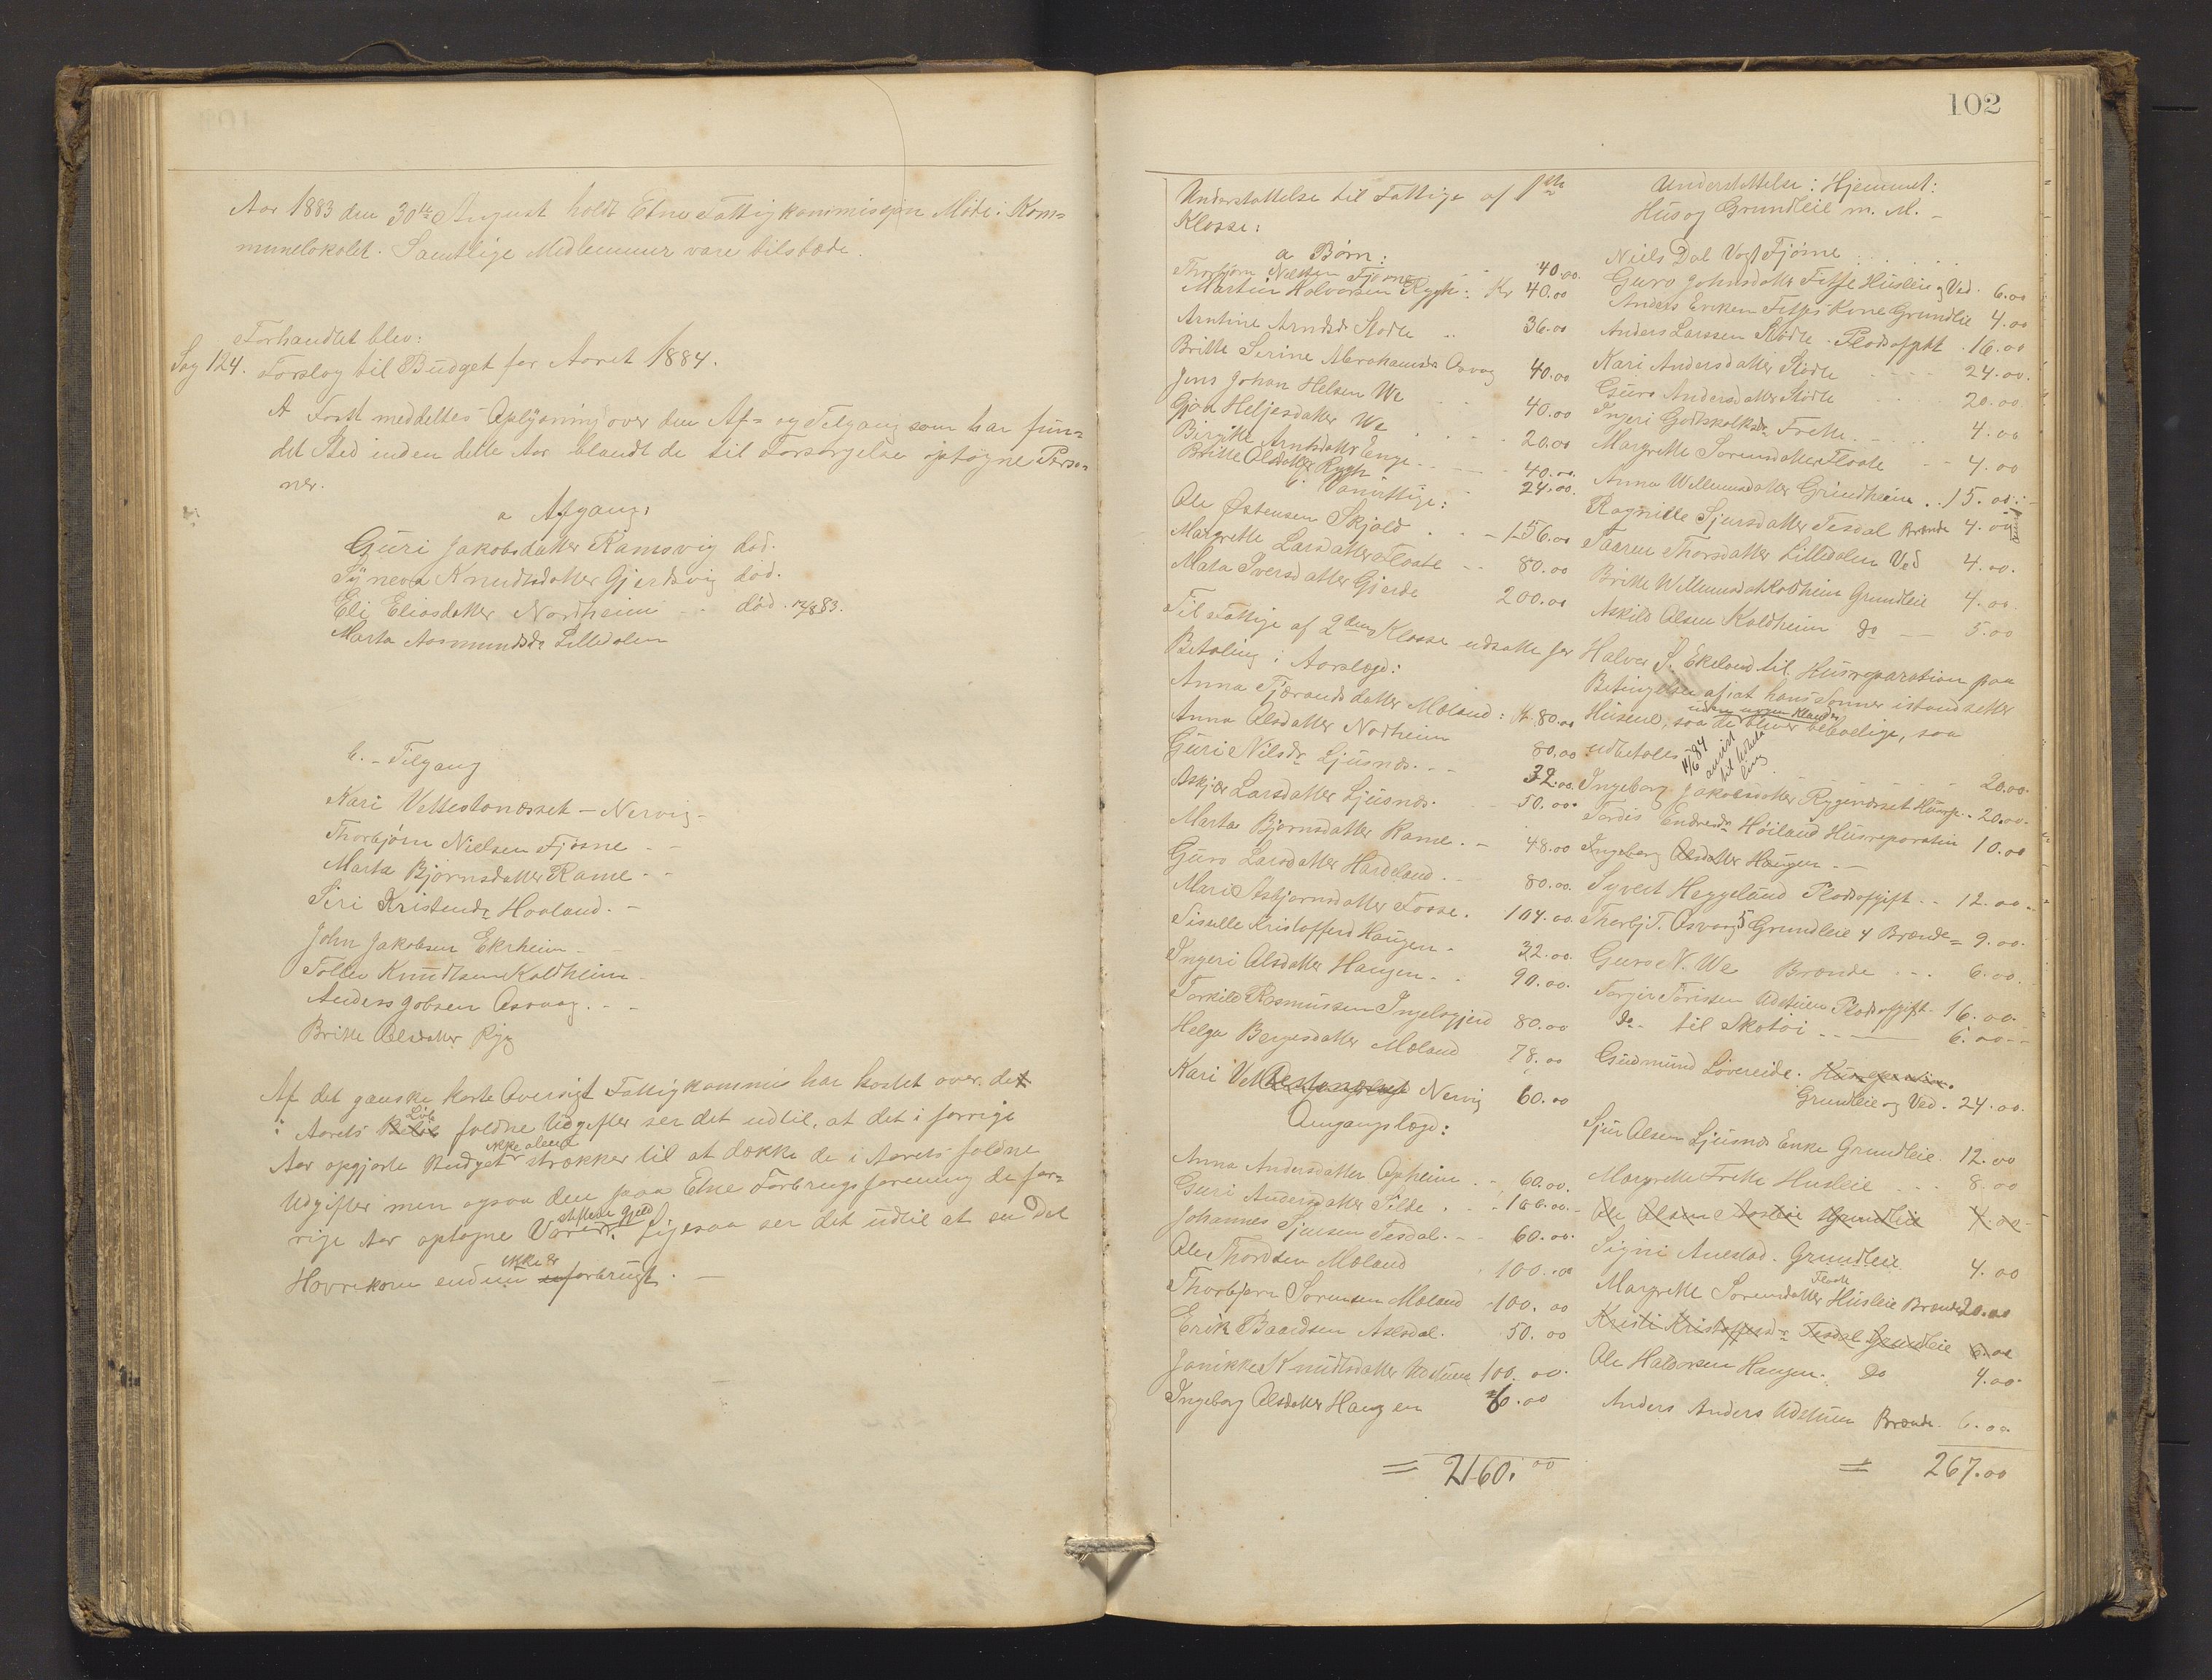 Aar 1883 den 30te August holdt Etne Fattigkommission Møde i Kom=
munelokalet. Samtlige Medlemmer vare tilstæde.
Forhandlet blev:
Sag 124. Forslag til Budget for Aaret 1884.
A Først meddeltes Oplysning over den Af= og Tilgang som har fun=
det Sted inden dette Aar blandt de til Forsørgelse optagne Perso=
ner.
a Afgang.
Guri Jakobsdatter Ramsvig død.
Syneva Knudtsdatter Gjerdsvig død.
Eli Eliasdatter Nordheim - - død. 12/8 83.
Marta Aasmundsdr Lilledalen
b. - Tilgang
Kari Vettestonæsset - Nervig -
Thorbjørn Nielsen Fjøsne - -
Marta Bjørnsdatter Rame - -
Siri Kristendr Haaland. -
John Jakobsen Ekrheim -
Tollev Knudtsen Kaldheim -
Anders Jobsen Osvaag. - -
Britte Olsdatter Ryg
Af det ganske korte Oversigt Fattigkommis har kastet over det
i Aarets Løb faldne Udgifter ser det udtil, at det i forrige
Aar opgjorte Budget ikke aleene strækker til at dække de i Aarets faldne
Udgifter men ogsaa den paa Etne Forbrugsforening de for=
rige Aar optagne Varer stiftede Gjeld. Ligesaa ser det udtil at en Del
Havrekorn endnu ikke er forbrugt. -
102
Understøttelse til Fattige af 1ste
Klasse:
a Børn:
Thorbjørn Nielsen Fjøsne - - 40.00.
Martin Halvorsen Rygh: Kr 40.00
Arntine Arndsdr Stødle .. 36.00
Britte Serine Abrahamsdr Osvag 40.00
Jens Johan Helsen We . . 40.00
Gjøa Heljesdatter We . . . . 20.00
Birgitte Arntsdatter Enge - - - 40.00.
Britte Olsdatter Rygh 24.00.
b. Vanvittige:
Ole Østensen Skjold . . - 156.00
Margrette Larsdatter Floate - - 80.00
Mata Iversdatter Gjerde 200.00
Til Fattige af 2den Klasse udsatte for
Betaling i Aarslægd:
Anna Tjærandsdatter Mæland: Kr. 80.00
Anna Olsdatter Nordheim 80.00
Guri Nilsdr Ljusnes. - - 32.00.
Askjær Larsdatter Ljusnes. - 50.00.
Marta Bjørnsdatter Rame. - 48.00
Guro Larsdatter Hardeland. - 80.00.
Mari Asbjørnsdatter Fosse. 104.00.
Siselle Kristoffersd Haugen - 32.00.
Ingeri Olsdatter Haugen - - 90.00.
Torkild Rasmussen Ingelsgjerd 80.00
Helga Bergesdatter Mæland 78.00
Kari Vettestonæsset Nervig 60.00
Omgangslægd:
Anna Andersdatter Opheim . - 60.00.
Guri Andersdatter Silde . - - 100.00. -
Johannes Sjursen Tesdal. - - 60.00.
Ole Thordsen Mæland 100.00
Thorbjørn Sørensen Mæland 100.00
Erik Baardsen Axdal. 50.00
Janikke Knudtsdatter Udstuen 100.00.
Ingeborg Olsdatter Haugen 20.00
= 2160.00
Understøttelse i Hjemmet:
Hus og Grundleie m. M. -
Niels Dal Vogt Fjøsne . . . . .
Guro Johnsdatter Fitje Husleie og Ved. 6.00
Anders Eriksen Fitjes Kone Grundleie 4.00
Anders Larssen Stødle Pladsafgift . 16.00
Kari Andersdatter Stødle - - - - 24.00.
Guro Andersdatter Stødle . . . 20.00
Ingeri Godtskalksdr Frette. - . . 4.00
Margrette Sørensdatter Floate - - 4.00
Anna Willumsdatter Grindheim . . 15.00.
Ragnille Sjursdatter Tesdal Brænde 4.00
Taaren Thorsdatter Lilledalen Ved 4.00.
Britte Willumsdatr Kaldheim Grundleie 4.00.
Askild Olsen Kaldheim do - - 5.00
Halvor S. Ekeland til Husreparation paa
Betingelse af, at hans Sønner istandsætter
Husene, saa de uden nogen Klander bliver beboelige, saa
udbetales 11/6 84 anvist til Udbetaling - - 20.00.
Ingeborg Jakobsdatter Rygjenæsset Husrep. - 20.00.
Tordis Endresdr Høiland Husreparation 10.00
Ingeborg Olsdatter Haugen - -
Syvert Heggelund Pladsafgift - - 12.00.
Thorbj. T. Osvaag 5 Grundleie 4 Brænde = 9.00.
Guro N. We Brænde . - - 6.00.
Torgir Torissen Udstuen Pladsafgift - 16.00.
do - til Skotøi - - - 6.00 - -
Gudmund Løvereide. Husreparation.
Grundleie og Ved. 24.00.
Sjur Olsen Ljusnes Enke Grundleie. 12.00
Margrette Frette Husleie . . . 8.00
Ole Olsen Grundleie 4.00 -
Signi Austad. Grundleie 4.00
Margrette Sørensdatter Floate Husleie Brænde 20.00
Kristi Kristoffersdr Tesdal Grundleie 6.00
Ole Haldorsen Haugen. do 4.00.
Anders Anders Udstuen Brænde. 6.00
= 267.00